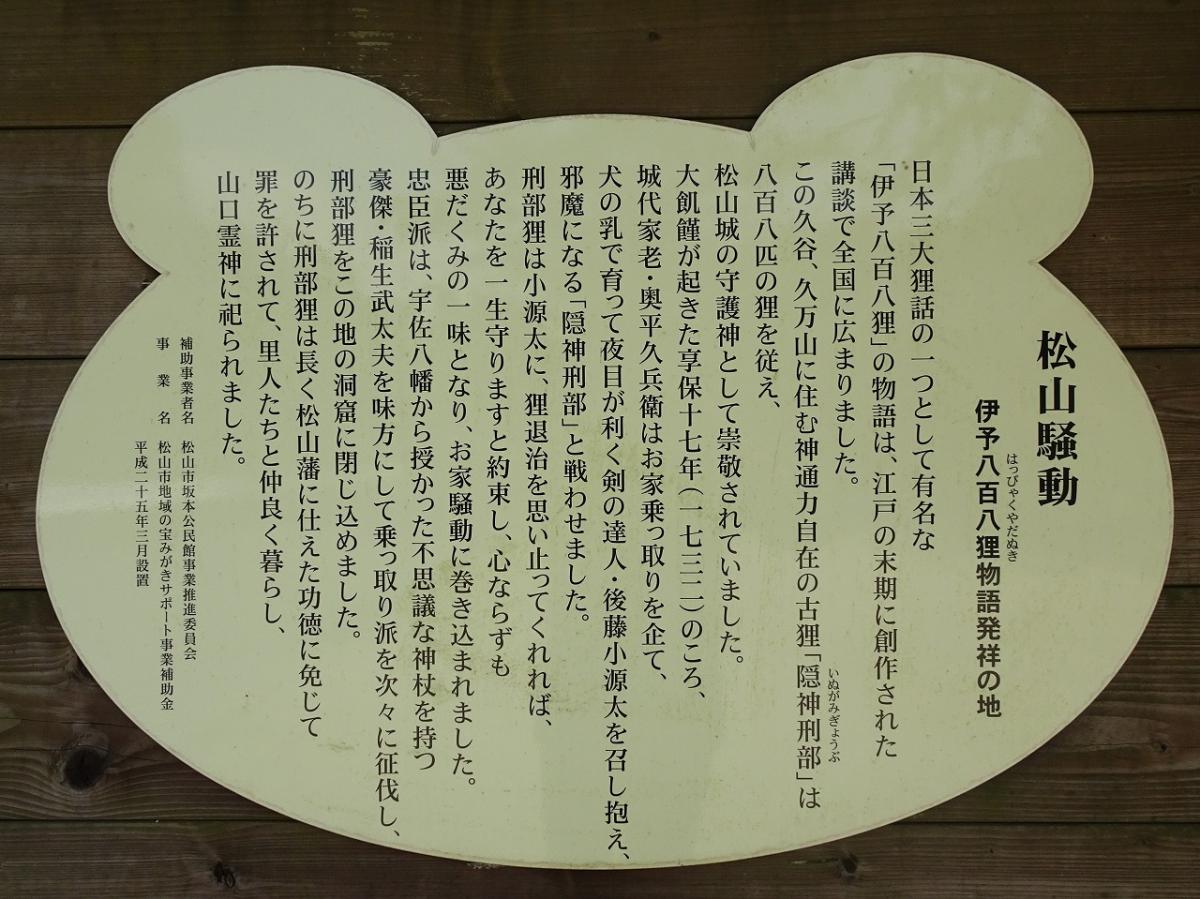 松山騒動
伊予八百八狸物語発祥の地
はっぴゃくやだぬき
日本三大狸話の一つとして有名な
「伊予八百八狸」の物語は、江戸の末期に創作された
講談で全国に広まりました。
この久谷、久万山に住む神通力自在の古狸「隠神刑部」は
いぬがみぎょうぶ
八百八匹の狸を従え、
松山城の守護神として崇敬されていました。
大飢饉が起きた享保十七年(一七三二)のころ、
城代家老・奥平久兵衛はお家乗っ取りを企て、
犬の乳で育って夜目が利く剣の達人・後藤小源太を召し抱え、
邪魔になる「隠神刑部」と戦わせました。
刑部狸は小源太に、狸退治を思い止ってくれれば、
あなたを一生守りますと約束し、心ならずも
悪だくみの一味となり、お家騒動に巻き込まれました。
忠臣派は、宇佐八幡から授かった不思議な神杖を持つ
豪傑・稲生武太夫を味方にして乗っ取り派を次々に征伐し、
刑部狸をこの地の洞窟に閉じ込めました。
のちに刑部狸は長く松山藩に仕えた功徳に免じて
罪を許されて、里人たちと仲良く暮らし、
山口霊神に祀られました。
補助事業者名 松山市坂本公民館事業推進委員会
事業名 松山市地域の宝みがきサポート事業補助金
平成二十五年三月設置